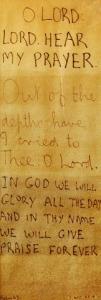 O LORD
LORD. HEAR
MY PRAYER.
Out of the
depths have
I cried to
Thee: O Lord.
IN GOD WE WILL
GLORY ALL THE DAY
AND IN THY NAME
WE WILL GIVE
PRAISE FOREVER